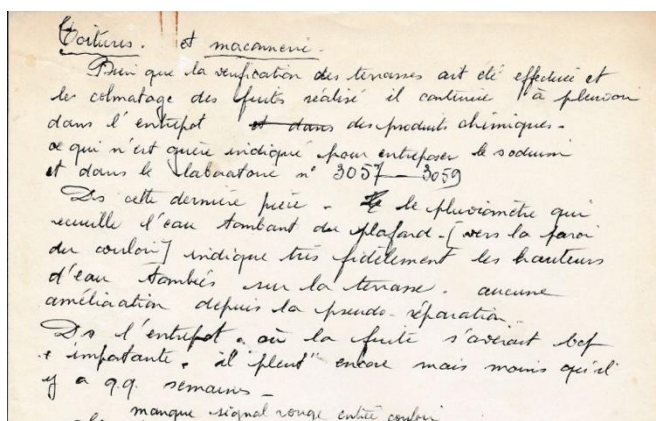 Toitures. et maconnerie.
Bien que la verification des terrasses ait été effectuée et
le colmatage des fuites réalisé il continue à pleuvoir
dans l'entrepot et dans des produits chimiques.
ce qui n'est guère indiqué pour entreposer le sodium
et dans le laboratoire n° 3057 - 3059
Ds cette dernière pièce. le pluviomètre qui
recueille l'eau tombant du plafond. [vers la paroi
du couloir] indique très fidèlement les hauteurs
d'eau tombées sur la terrasse. aucune
amélioration depuis la pseudo-réparation
Ds l'entrepot. où la fuite s'averait bcp
+ importante. il "pleut" encore mais moins qu'il
y a q.q. semaines -
manque signal rouge entrée couloir